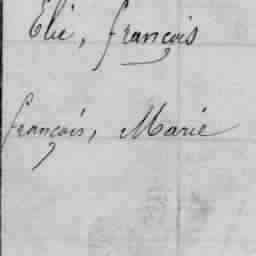 Elie, françois
françois, Marie